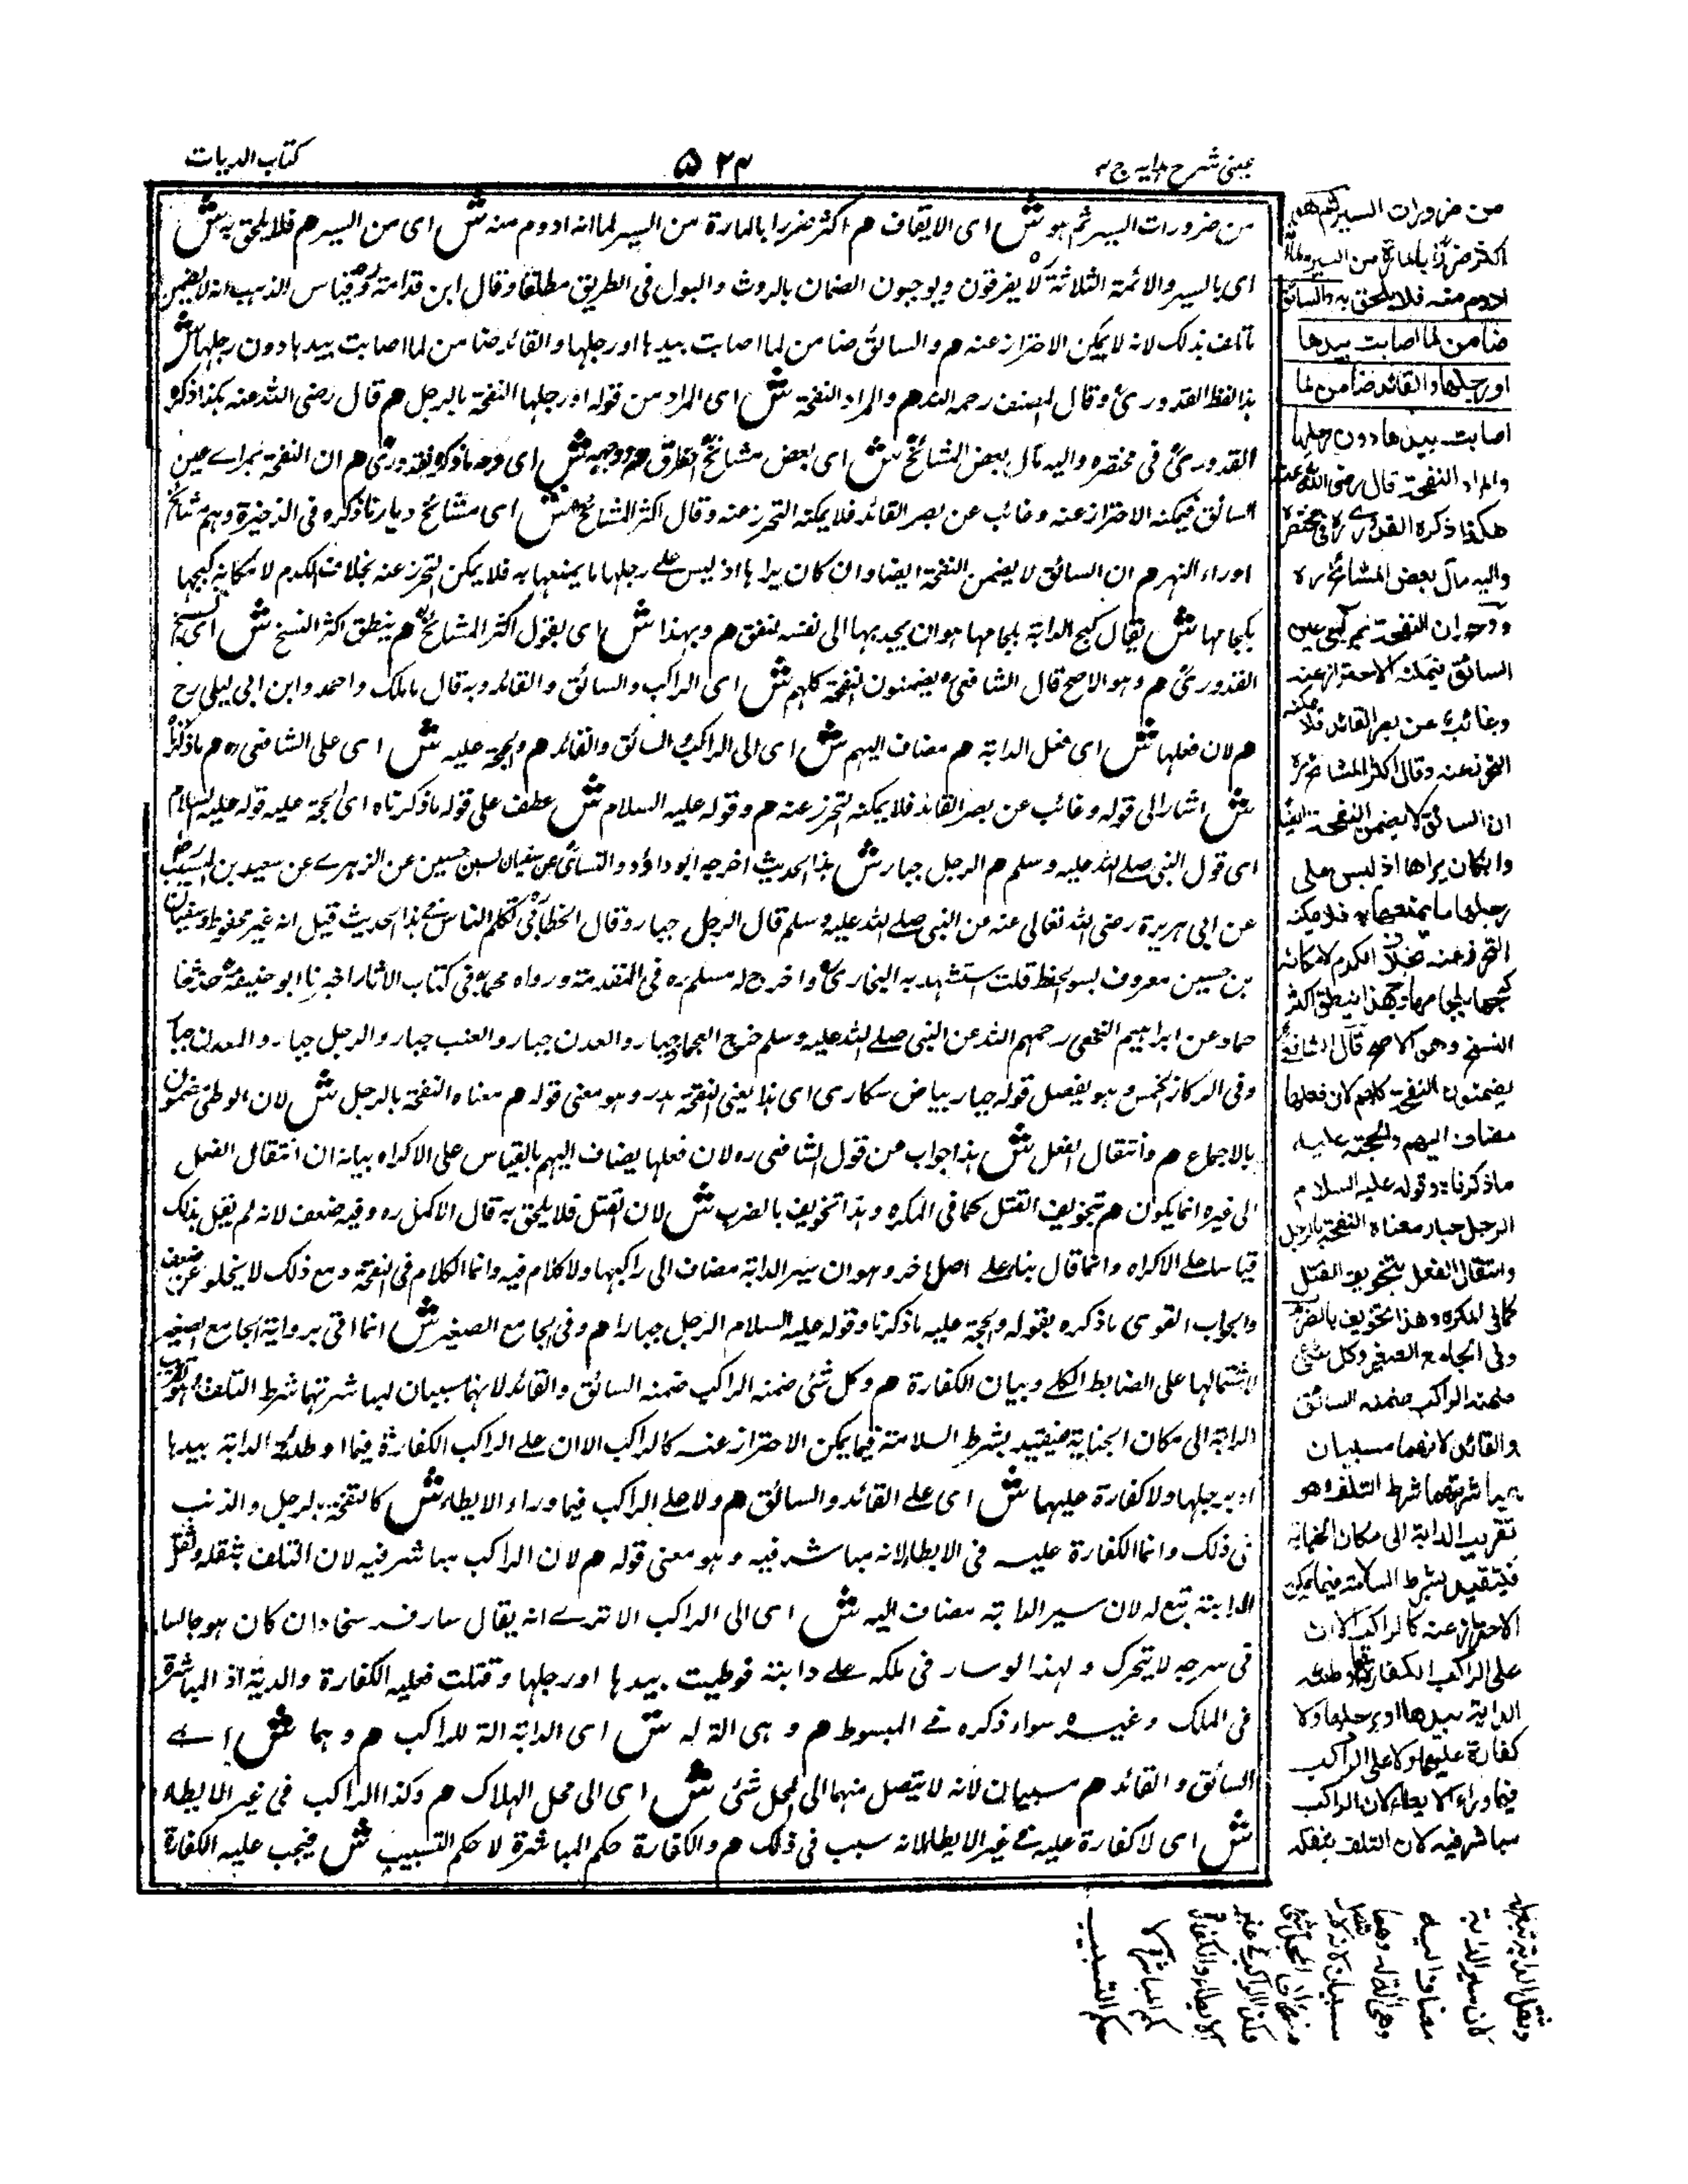 عینی شرح ہدایہ ج ۴
۵۲۴
کتاب الدیات
من ضرورات السیر ثم هو ش ای الایقاف هم اکثر ضررا بالمارة من السیر لما انه ادوم منه ش ای من السیر هم فلا یلحق به ش
ای بالسیر والائمة الثلاثة لا یفرقون ویوجبون الضمان بالروث والبول فی الطریق مطلقا وقال ابن قدامة وقیاس المذهب انه لا یضمن
ما تلف بذلک لانه لا یمکن الاحتراز عنه هم والسائق ضامن لما اصابت بیدها او رجلها والقائد ضامن لما اصابت بیدها دون رجلها ش
هذا لفظ القدوری وقال المصنف رحمه الله هم والمراد النفحة ش ای المراد من قوله او رجلها النفحة بالرجل هم قال رضی الله عنه هکذا ذکره
القدوری فی مختصره والیه مال بعض المشائخ ش ای بعض مشائخ العراق هم ووجهه ش ای وجه ما ذکره القدوری هم ان النفحة بمرای عین
السائق فیمکنه الاحتراز عنه وغائب عن بصر القائد فلا یمکنه التحرز عنه وقال اکثر المشائخ ش ای مشائخ دیارنا ذکره فی الذخیرة وهم مشائخ
ماوراء النهر هم ان السائق لا یضمن النفحة ایضا وان کان یراها اذ لیس علی رجلها ما یمنعها به فلا یمکن التحرز عنه بخلاف الکدم لامکانه کبحها
بلجامها ش یقال کبح الدابة بلجامها هو ان یجذبها الی نفسه لتقف هم وبهذا ش ای بقول اکثر المشائخ هم ینطق اکثر النسخ ش ای نسخ
القدوری هم وهو الاصح قال الشافعی یضمنون النفحة کلهم ش ای الراکب والسائق والقائد وبه قال مالک واحمد وابن ابی لیلی رح
هم لان فعلها ش ای فعل الدابة هم مضاف الیهم ش ای الی الراکب والسائق والقائد هم والحجة علیه ش ای علی الشافعی ره هم ما ذکرنا
ش اشار الی قوله وغائب عن بصر القائد فلا یمکنه التحرز عنه هم وقوله علیه السلام ش عطف علی قوله ما ذکرناه ای الحجة علیه قوله علیه السلام
ای قول النبی صلی الله علیه وسلم هم الرجل جبار ش هذا الحدیث اخرجه ابو داؤد والنسائی عن سفیان بن حسین عن الزهری عن سعید بن المسیب
عن ابی هریرة رضی الله تعالی عنه عن النبی صلی الله علیه وسلم قال الرجل جبار وقال الخطابی تکلم الناس فی هذا الحدیث قیل انه غیر محفوظ وسفیان
بن حسین معروف بسوء الحفظ قلت استشهد به البخاری واخرج له مسلم ره فی المقدمة ورواه محمد فی کتاب الاثار اخبرنا ابو حنیفة حدثنا
حماد عن ابراهیم النخعی رحمهم الله عن النبی صلی الله علیه وسلم جرح العجماء جبار والمعدن جبار والرجل جبار والمعدن جبار
وفی الرکاز الخمس وهو یفصل قوله جبار بیاض سکاری ای هذا یعنی النفحة هدر وهو معنی قوله هم معناه النفحة بالرجل ش لان الوطئ مضمون
بالاجماع هم وانتقال الفعل ش هذا جواب عن قول الشافعی ره لان فعلها یضاف الیهم بالقیاس علی الاکراه بیانه ان انتقال الفعل
الی غیره انما یکون هم بتخویف القتل کما فی المکره وهذا تخویف بالضرب ش لان القتل فلا یلحق به قال الاکمل ره وفیه ضعف لانه لم یقل بذلک
قیاسا علی الاکراه وانما قال بناء علی اصل اخر وهو ان سیر الدابة مضاف الی راکبها ولا کلام فیه وانما الکلام فی النفحة ومع ذلک لا یخلو عن ضعف
والجواب القوی ما ذکره بقوله والحجة علیه ما ذکرنا وقوله علیه السلام الرجل جبار هم وفی الجامع الصغیر ش انما اتی بروایة الجامع الصغیر
لاشتمالها علی الضابط الکلی وبیان الکفارة هم وکل شئ ضمنه الراکب ضمنه السائق والقائد لانهما مسببان لمباشرتهما شرط التلف وهو تقریب
الدابة الی مکان الجنایة فیتقید بشرط السلامة فیما یمکن الاحتراز عنه کالراکب الا ان علی الراکب الکفارة فیما اوطئته الدابة بیدها
او برجلها ولا کفارة علیهما ش ای علی القائد والسائق هم ولا علی الراکب فیما وراء الایطاء ش کالنفحة بالرجل والذنب
فی ذلک وانما الکفارة علیه فی الایطاء لانه مباشر فیه وهو معنی قوله هم لان الراکب مباشر فیه لان التلف بثقله وثقل
الدابة تبع له لان سیر الدابة مضاف الیه ش ای الی الراکب الا تری انه یقال سار فرسخا وان کان هو جالسا
فی سرجه لا یتحرک ولهذا لو سار فی ملکه علی دابته فوطیت بیدها او رجلها وقتلت فعلیه الکفارة والدیة اذ المباشرة
فی الملک وغیره سواء ذکره فی المبسوط هم وهی الة له ش ای الدابة الة للراکب هم وهما ش ای
السائق والقائد هم مسببان لانه لا یتصل منهما الی المحل شئ ش ای الی محل الهلاک هم وکذا الراکب فی غیر الایطاء
ش ای لا کفارة علیه فی غیر الایطاء لانه سبب فی ذلک هم والکفارة حکم المباشرة لا حکم التسبیب ش فیجب علیه الکفارة
من ضرورات السیر ثم هو
اکثر ضررا بالمارة من السیر لما انه
ادوم منه فلا یلحق به والسائق
ضامن لما اصابت بیدها
او رجلها والقائد ضامن لما
اصابت بیدها دون رجلها
والمراد النفحة قال رضی الله عنه
هکذا ذکره القدوری فی مختصره
والیه مال بعض المشائخ ره
ووجهه ان النفحة بمرأی عین
السائق فیمکنه الاحتراز عنه
وغائب عن بصر القائد فلا یمکنه
التحرز عنه وقال اکثر المشائخ ره
ان السائق لا یضمن النفحة ایضا
وان کان یراها اذ لیس علی
رجلها ما یمنعها به فلا یمکنه
التحرز عنه بخلاف الکدم لامکانه
کبحها بلجامها وبهذا ینطق اکثر
النسخ وهو الاصح قال الشافعی
یضمنون النفحة کلهم لان فعلها
مضاف الیهم والحجة علیه
ما ذکرنا وقوله علیه السلام
الرجل جبار معناه النفحة بالرجل
وانتقال الفعل بتخویف القتل
کما فی المکره وهذا تخویف بالضرب
وفی الجامع الصغیر وکل شئ
ضمنه الراکب ضمنه السائق
والقائد لانهما مسببان
بمباشرتهما شرط التلف وهو
تقریب الدابة الی مکان الجنایة
فیتقید بشرط السلامة فیما یمکن
الاحتراز عنه کالراکب الا ان
علی الراکب الکفارة فیما اوطئته
الدابة بیدها او برجلها ولا
کفارة علیهما ولا علی الراکب
فیما وراء الایطاء لان الراکب
مباشر فیه لان التلف بثقله
وثقل الدابة تبع له
لان سیر الدابة
مضاف الیه
وهی الة له وهما
مسببان لانه لا یتصل
منهما الی المحل شئ
وکذا الراکب فی غیر
الایطاء والکفارة
حکم المباشرة لا
حکم التسبیب